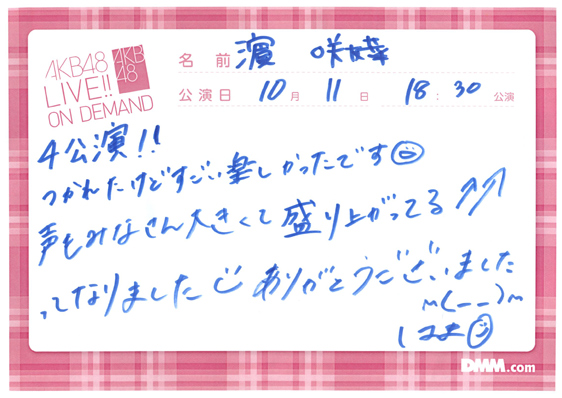 AKB48
LIVE!!
ON DEMAND
AKB
48
名前 濵 咲友菜
公演日 10月 11日 18:30 公演
4公演!!
つかれたけどすごい楽しかったです
声もみなさん大きくて盛り上がってる↗↗
ってなりました ありがとうございました
m(__)m
はま
DMM.com